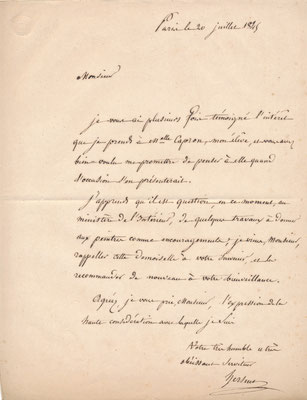 Paris le 20 juillet 1845
Monsieur
je vous ai plusieurs fois témoigné l'intérêt
que je prends à Melle Capron, mon élève, et vous avez
bien voulu me promettre de penser à elle quand
l'occasion s'en présenterait.
J'apprends qu'il est question, en ce moment, au
ministère de l'Intérieur, de quelques travaux à donner
aux peintres comme encouragements ; je viens, Monsieur,
rappeller cette demoiselle à votre souvenir, et la
recommander de nouveau à votre bienveillance.
Agréez je vous prie, Monsieur, l'expression de la
haute considération avec laquelle je suis
Votre très humble et très
obéissant Serviteur